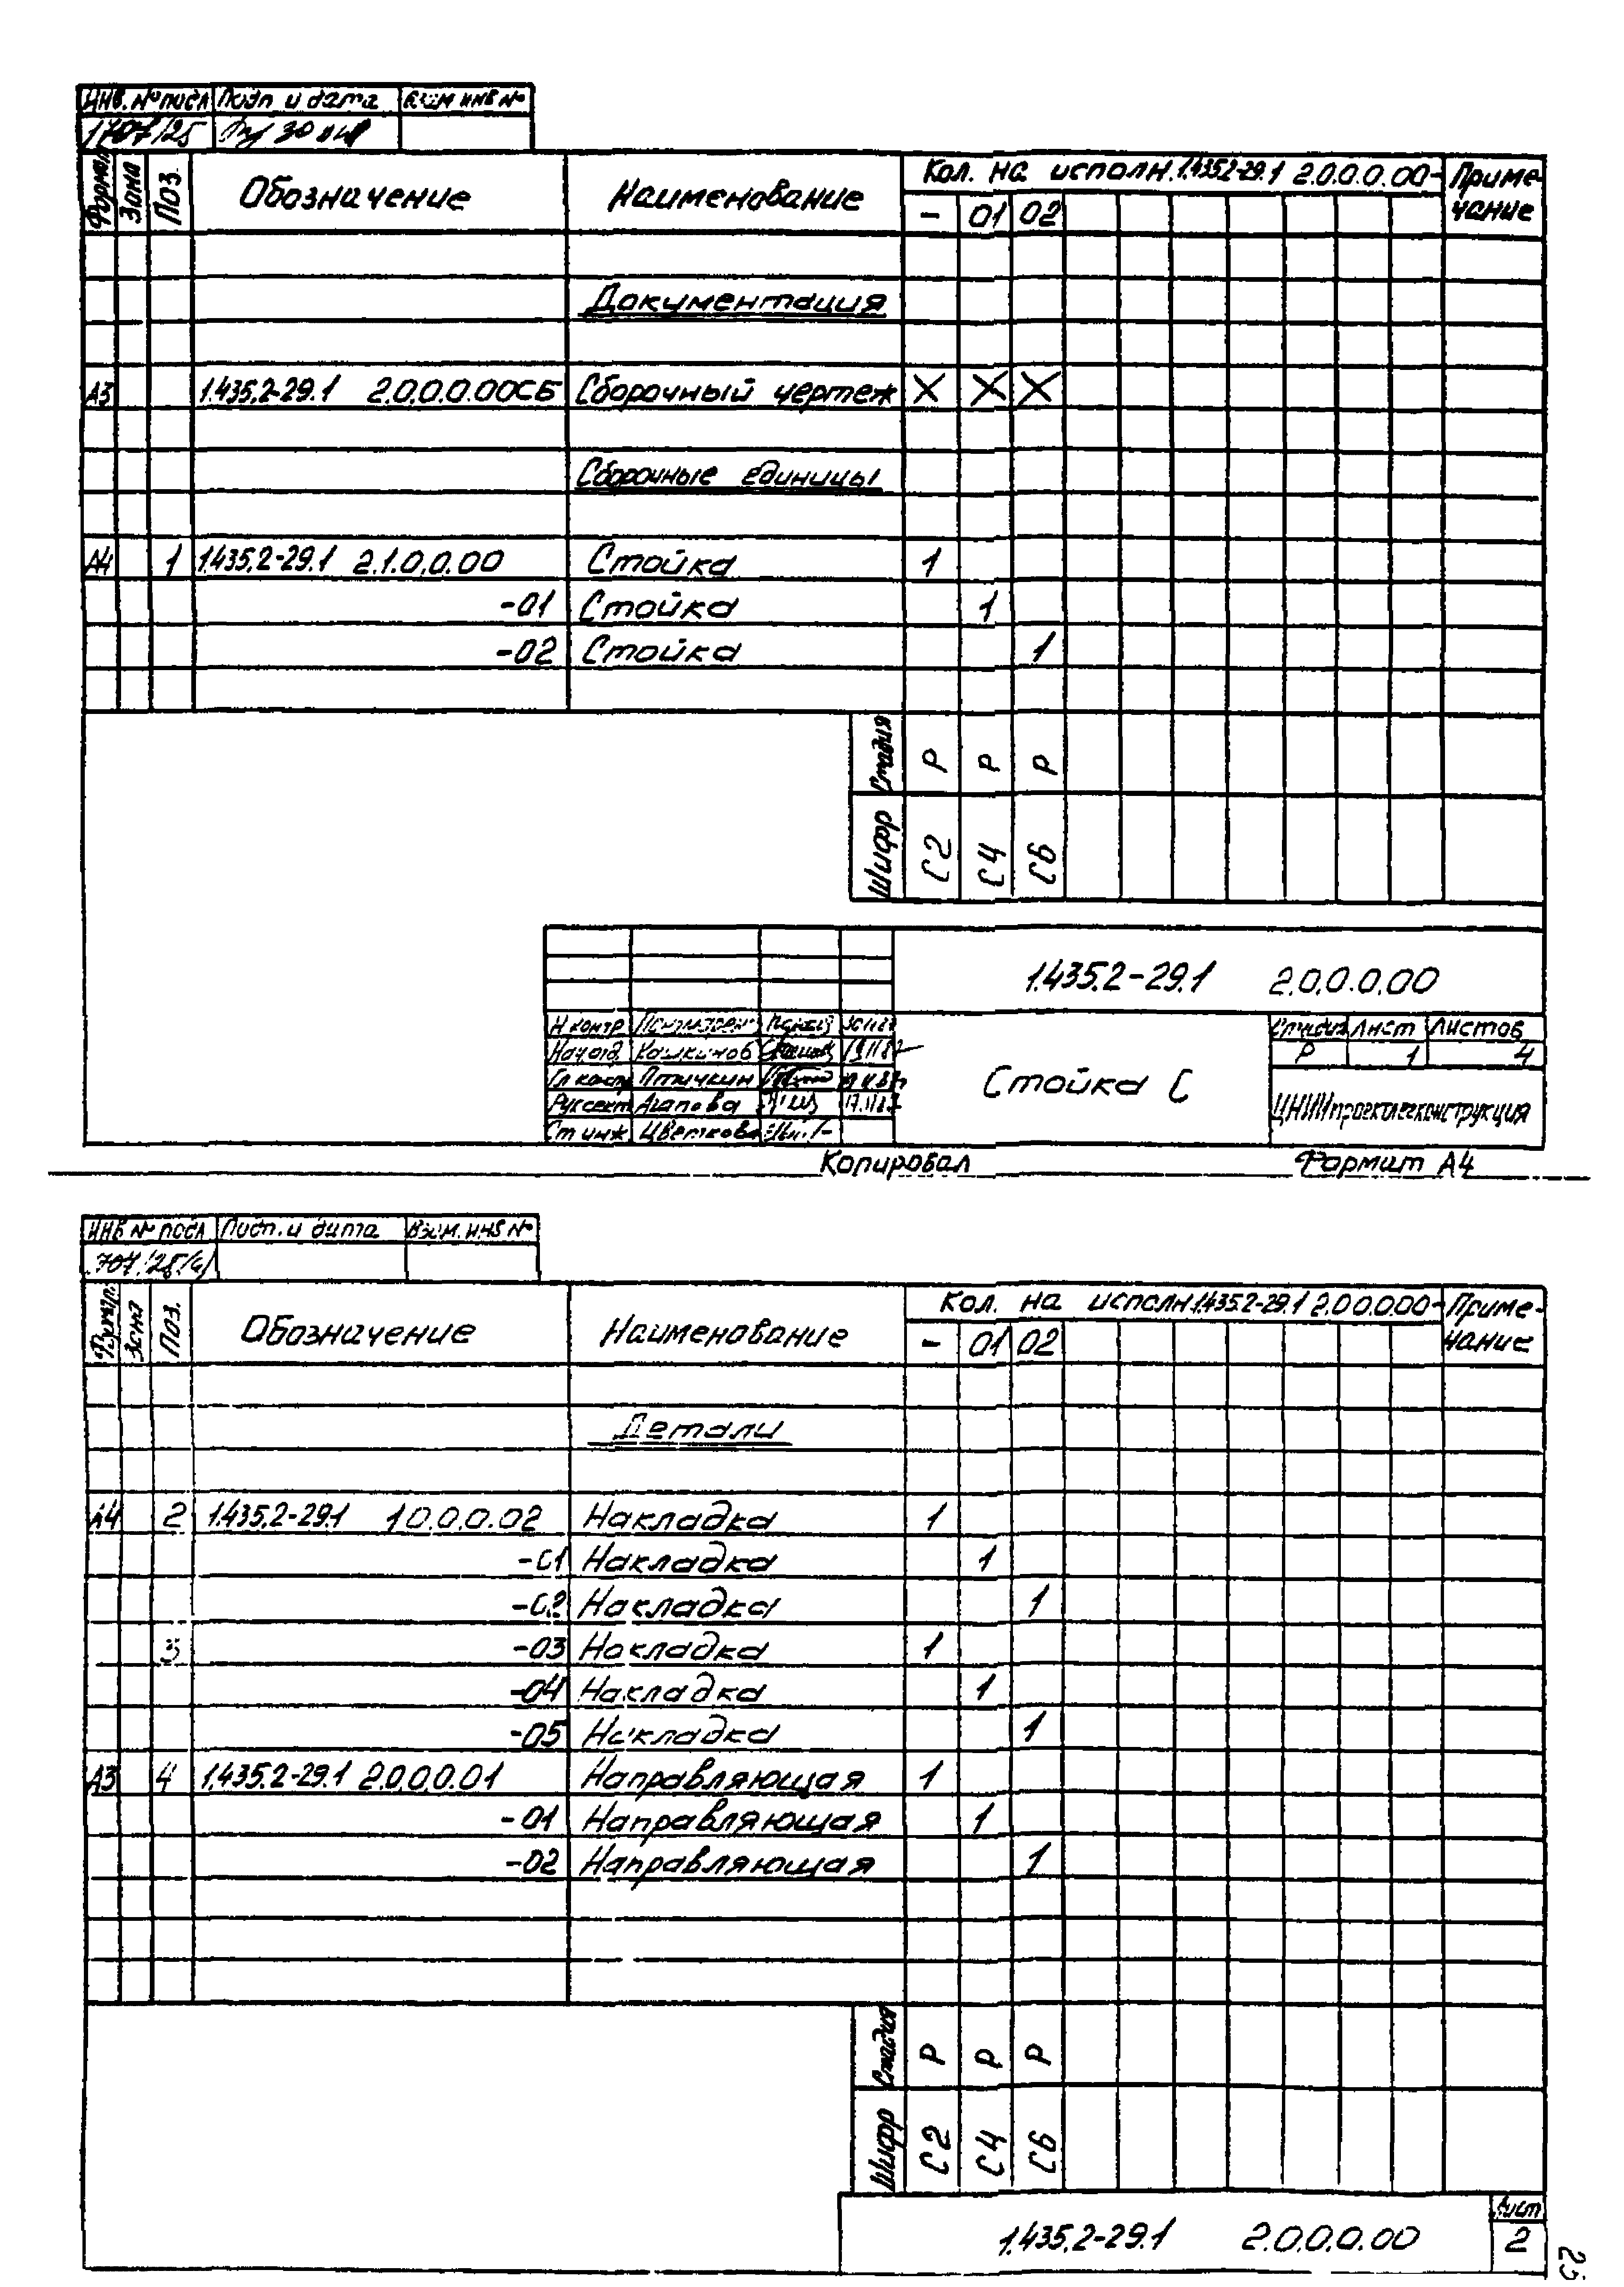 Инв. № подл Подп и дата Взам инв №
1707/25
Формат Зона Поз. Обозначение Наименование Кол. на исполн. 1.435.2-29.1 2.0.0.0.00- Приме-чание
- 01 02
Документация
А3 1.435.2-29.1 2.0.0.0.00СБ Сборочный чертеж X X X
Сборочные единицы
А4 1 1.435.2-29.1 2.1.0.0.00 Стойка 1
-01 Стойка 1
-02 Стойка 1
Стадия Р Р Р
Шифр С2 С4 С6
1.435.2-29.1 2.0.0.0.00
Н контр
Нач отд Кашкинов
Гл констр Птичкин
Рук сект Агапова
Ст инж Цветкова
Стойка С
Стадия Лист Листов
Р 1 4
ЦНИИпроектлегконструкция
Копировал Формат А4
Инв № подл Подп. и дата Взам. инв №
Формат Зона Поз. Обозначение Наименование Кол. на исполн 1.435.2-29.1 2.0.0.0.00- Приме-чание
- 01 02
Детали
А4 2 1.435.2-29.1 1.0.0.0.02 Накладка 1
-01 Накладка 1
-02 Накладка 1
3 -03 Накладка 1
-04 Накладка 1
-05 Накладка 1
А3 4 1.435.2-29.1 2.0.0.0.01 Направляющая 1
-01 Направляющая 1
-02 Направляющая 1
Стадия Р Р Р
Шифр С2 С4 С6
1.435.2-29.1 2.0.0.0.00
Лист
2
25